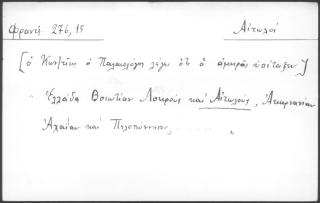 Φραντζ. 276, 15 Αἰτωλοί
[ὁ Κων/τῖνος ὁ Παλαιολόγος λέγει ὅτι ὁ ἀμηρᾶς ὑπέταξε]
" Ἑλλάδα Βοιωτίαν Λοκρούς καί Αἰτωλούς, Ἀκαρνανίαν
Ἀχαΐαν καί Πελοπόννησον, ........ "